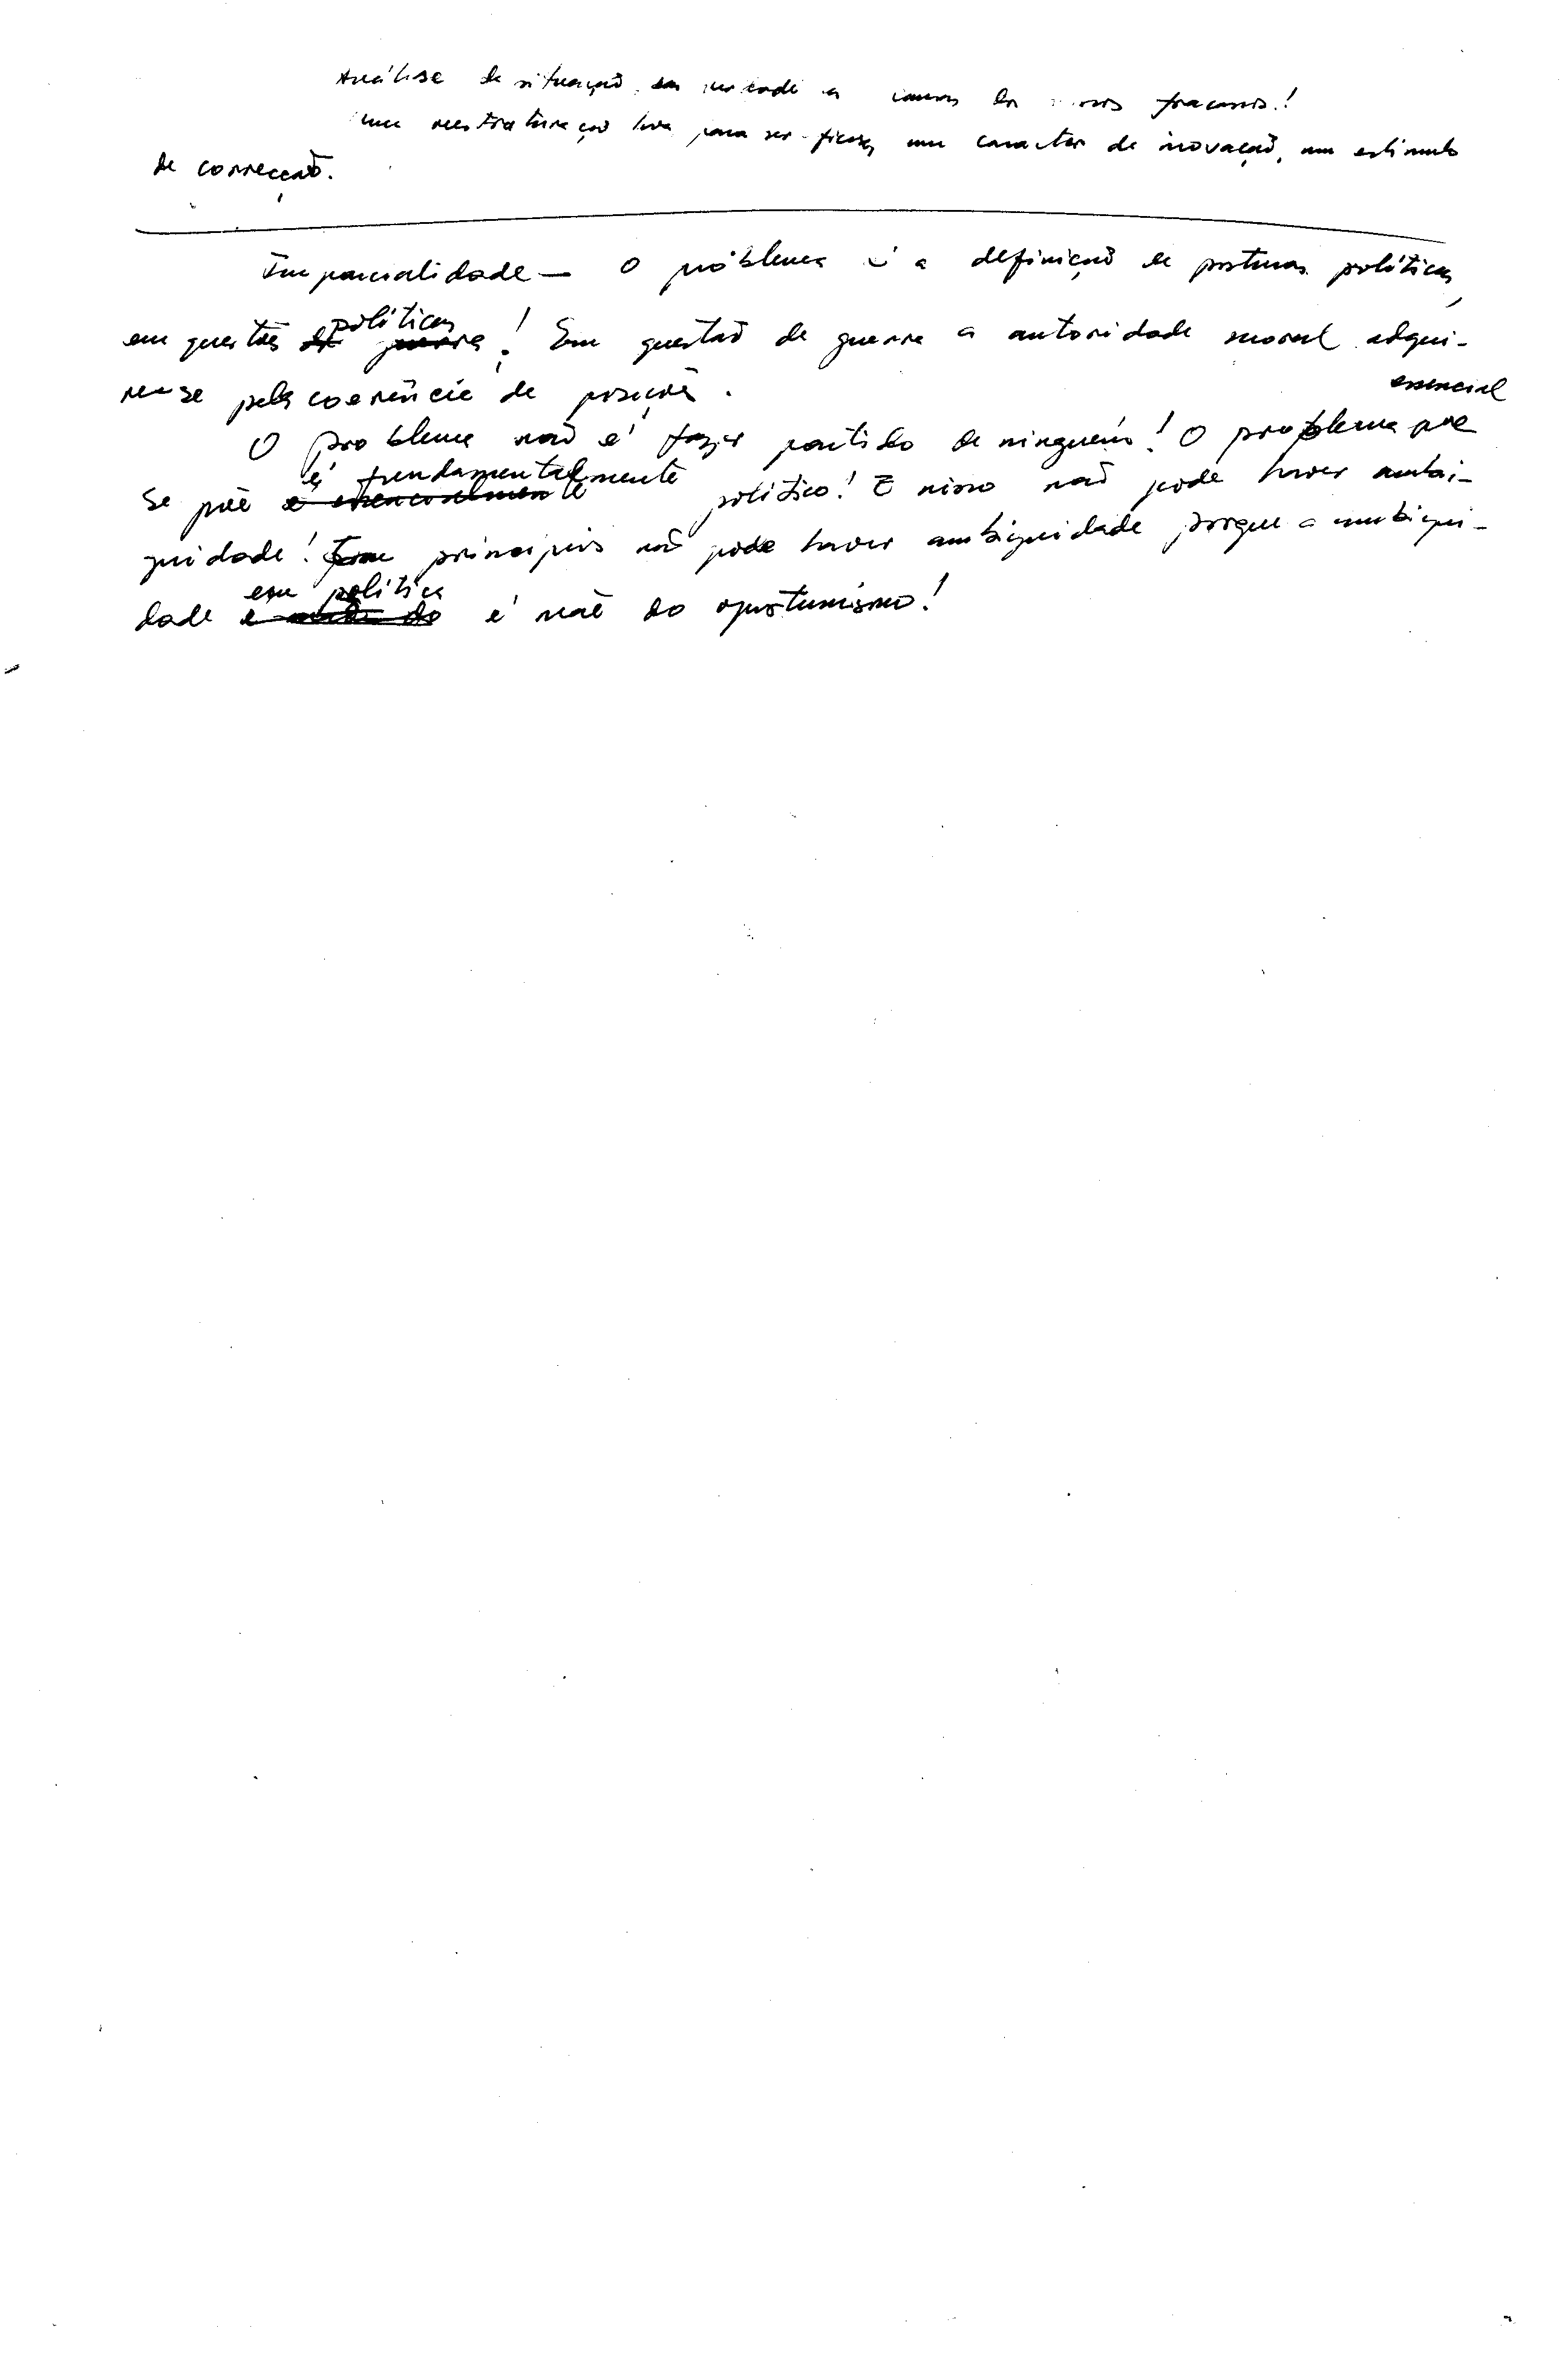 Análise de situação, em verdade as causas dos nossos fracassos!
uma reestruturação tem para ser eficaz, um caracter de inovação, um estimulo
de correcção.
Imparcialidade — O problema é a definição de posturas políticas,
em questões de guerra políticas! Em questão de guerra a autoridade moral adqui-
re-se pela coerência de posições.
O problema não é fazer partido de ninguém! O problema essencial que
se põe é essencialmente é fundamentalmente político! E nisso não pode haver ambi-
guidade! Em principios não pode haver ambiguidade porque a ambigui-
dade é mãe do em política é mãe do oportunismo!